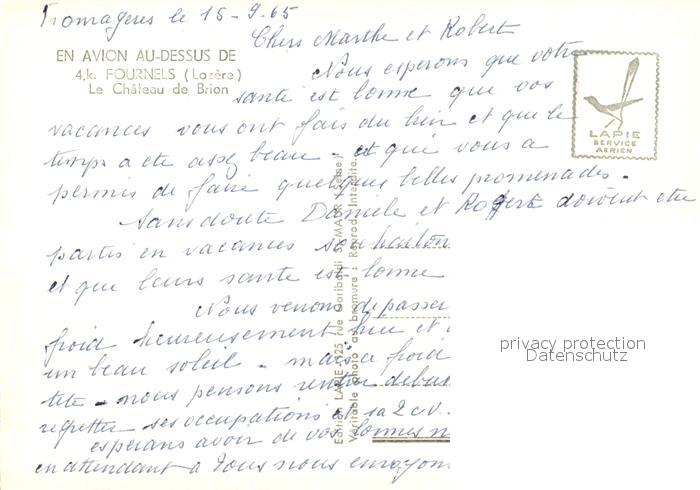 Fromagères le 15-9.65
Chers Marthe et Robert
EN AVION AU-DESSUS DE
4.k. FOURNELS (Lozère)
Le Château de Brion
LAPIE
SERVICE
AERIEN
Nous esperons que votre
santé est bonne que vos
vacances vous ont fais du bien et que le
temps a été assez beau - et qui vous a
permis de faire quelques belles promenades.
Sans doute Daniele et doivent etre
partis en vacances souhaitons
et que leurs santé est bonne
Nous venons de passer
froid heureusement hier et
un beau soleil - mais a froid
tete - nous pensons rentrer debut
regretter ses occupations et sa 2 cv.
esperans avoir de vos bonnes n
en attendant a Vous nous envoyons
Edition LAPIE 25 rue Garibaldi ST-MAUR (Seine)
Véritable photo au bromure : Reprod. Interdite.
privacy protection
Datenschutz